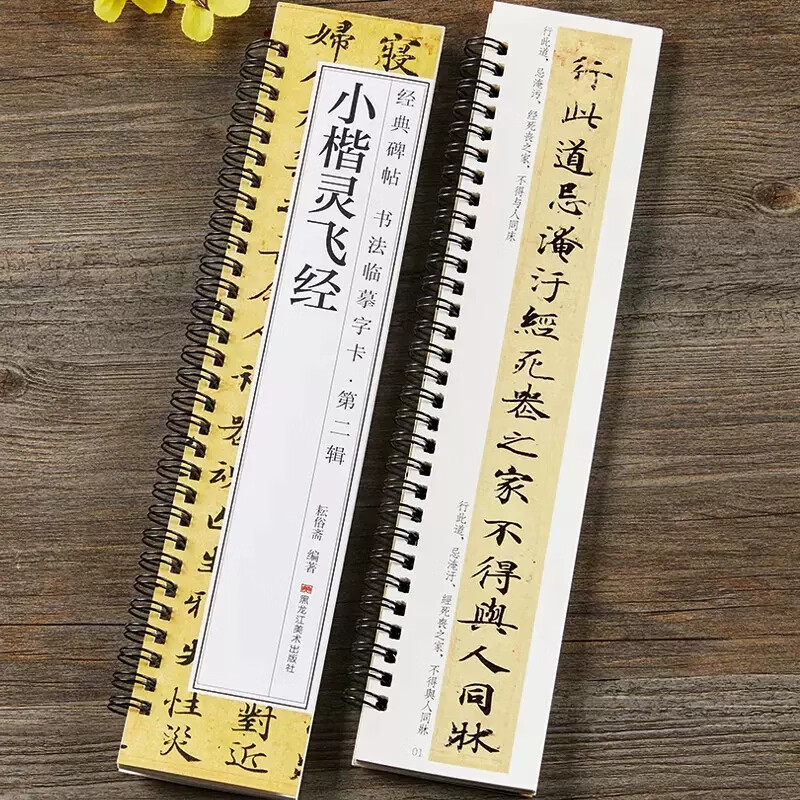 小楷灵飞经
经典碑帖 书法临摹字卡·第二辑
耘俗斋 编著
黑龙江美术出版社
寢
婦
對近
性災
行此道忌淹汙經死喪之家不得與人同牀
行此道，忌淹污、经死丧之家，不得与人同床
行此道，忌淹汙、經死喪之家，不得與人同牀
01